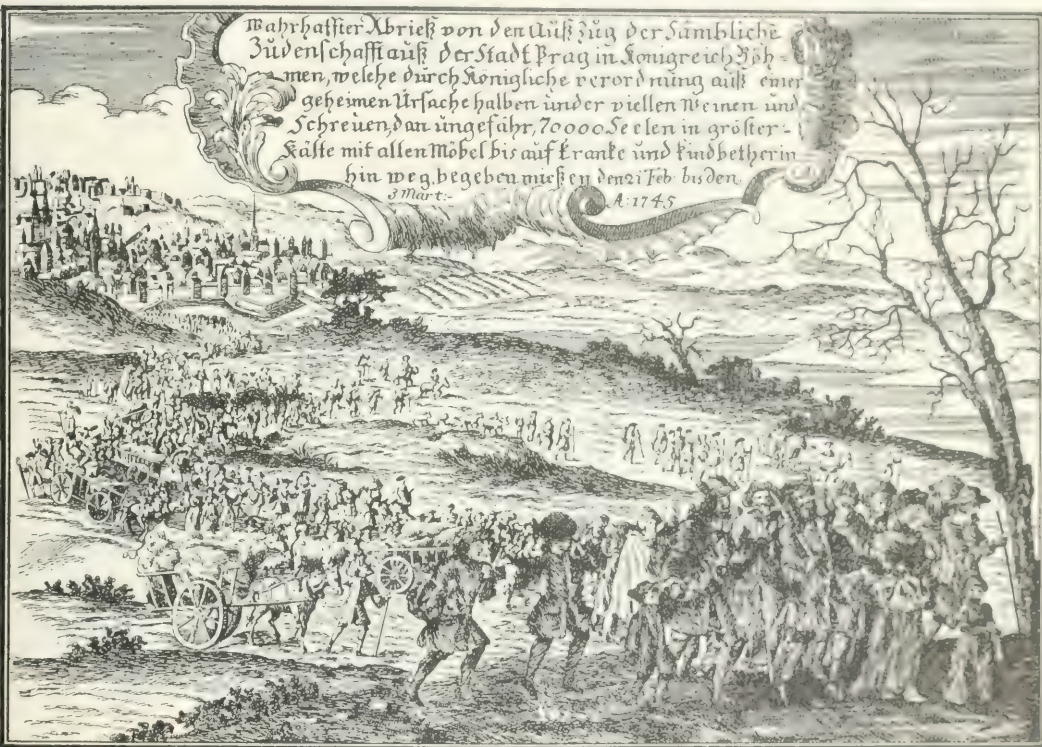 Wahrhaffter Abrieß von den Auß Zug der Sämbliche
Judenschafft auß der Stadt Prag in Königreich Böh-
men, welche durch Königliche verordnung auß einer
geheimen Ursache halben under viellen Weinen und
Schreuen, dan ungefähr, 70000 Seelen in gröster-
Kälte mit allen Möbel bis auf kranke und kindbetherin
hin weg begeben mießen den 21 Feb bis den
3 Mart:- A: 1745